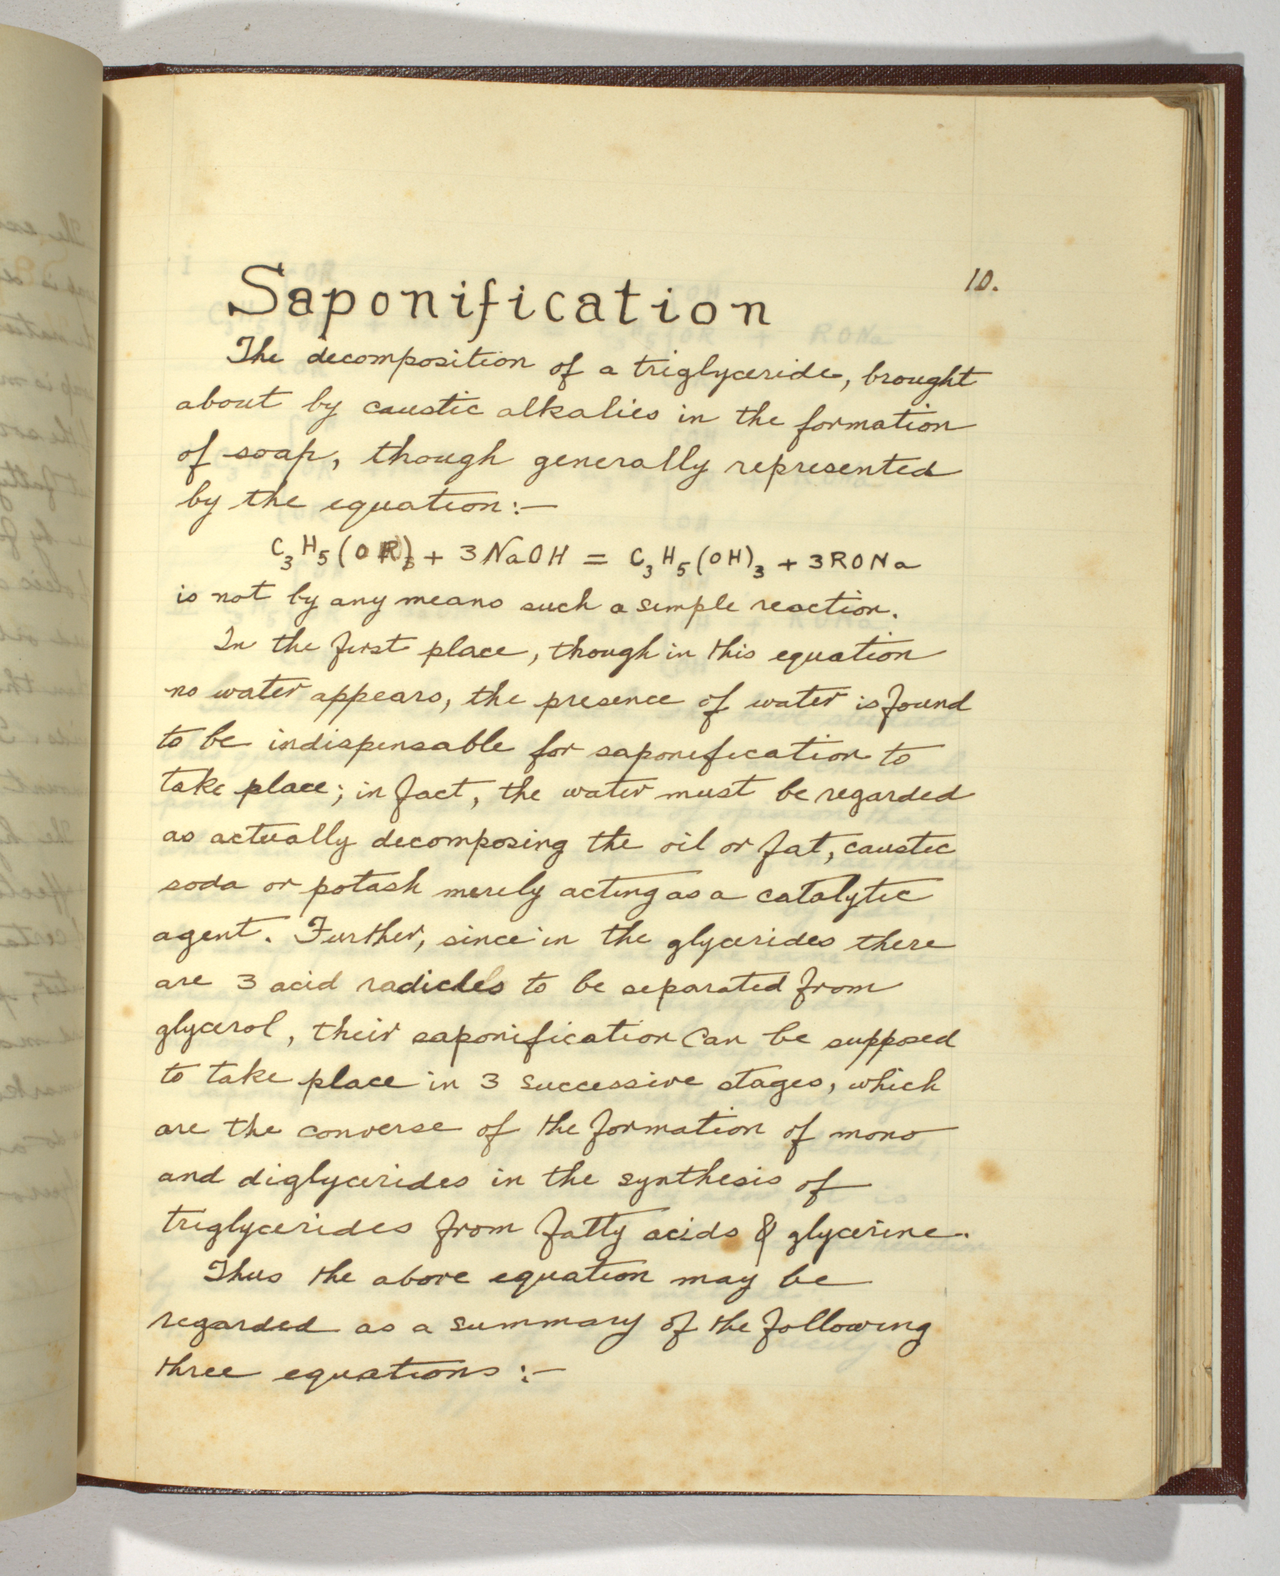 10.
Saponification
The decomposition of a triglyceride, brought
about by caustic alkalies in the formation
of soap, though generally represented
by the equation:—
C₃H₅(OR)₃ + 3NaOH = C₃H₅(OH)₃ + 3RONa
is not by any means such a simple reaction.
In the first place, though in this equation
no water appears, the presence of water is found
to be indispensable for saponification to
take place; in fact, the water must be regarded
as actually decomposing the oil or fat, caustic
soda or potash merely acting as a catalytic
agent. Further, since in the glycerides there
are 3 acid radicles to be separated from
glycerol, their saponification can be supposed
to take place in 3 successive stages, which
are the converse of the formation of mono
and diglycerides in the synthesis of
triglycerides from fatty acids & glycerine.
Thus the above equation may be
regarded as a summary of the following
three equations:—